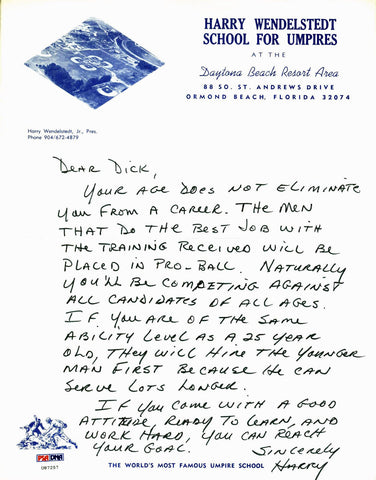 HARRY WENDELSTEDT
SCHOOL FOR UMPIRES
AT THE
Daytona Beach Resort Area
88 SO. ST. ANDREWS DRIVE
ORMOND BEACH, FLORIDA 32074
Harry Wendelstedt, Jr., Pres.
Phone 904/672-4879
DEAR DICK,
YOUR AGE DOES NOT ELIMINATE
YOU FROM A CAREER. THE MEN
THAT DO THE BEST JOB WITH
THE TRAINING RECEIVED WILL BE
PLACED IN PRO-BALL. NATURALLY
YOU'LL BE COMPETING AGAINST
ALL CANDIDATES OF ALL AGES.
IF YOU ARE OF THE SAME
ABILITY LEVEL AS A 25 YEAR
OLD, THEY WILL HIRE THE YOUNGER
MAN FIRST BECAUSE HE CAN
SERVE LOTS LONGER.
IF YOU COME WITH A GOOD
ATTITUDE, READY TO LEARN, AND
WORK HARD, YOU CAN REACH
YOUR GOAL. SINCERELY
HARRY
PSA/DNA
THE WORLD'S MOST FAMOUS UMPIRE SCHOOL